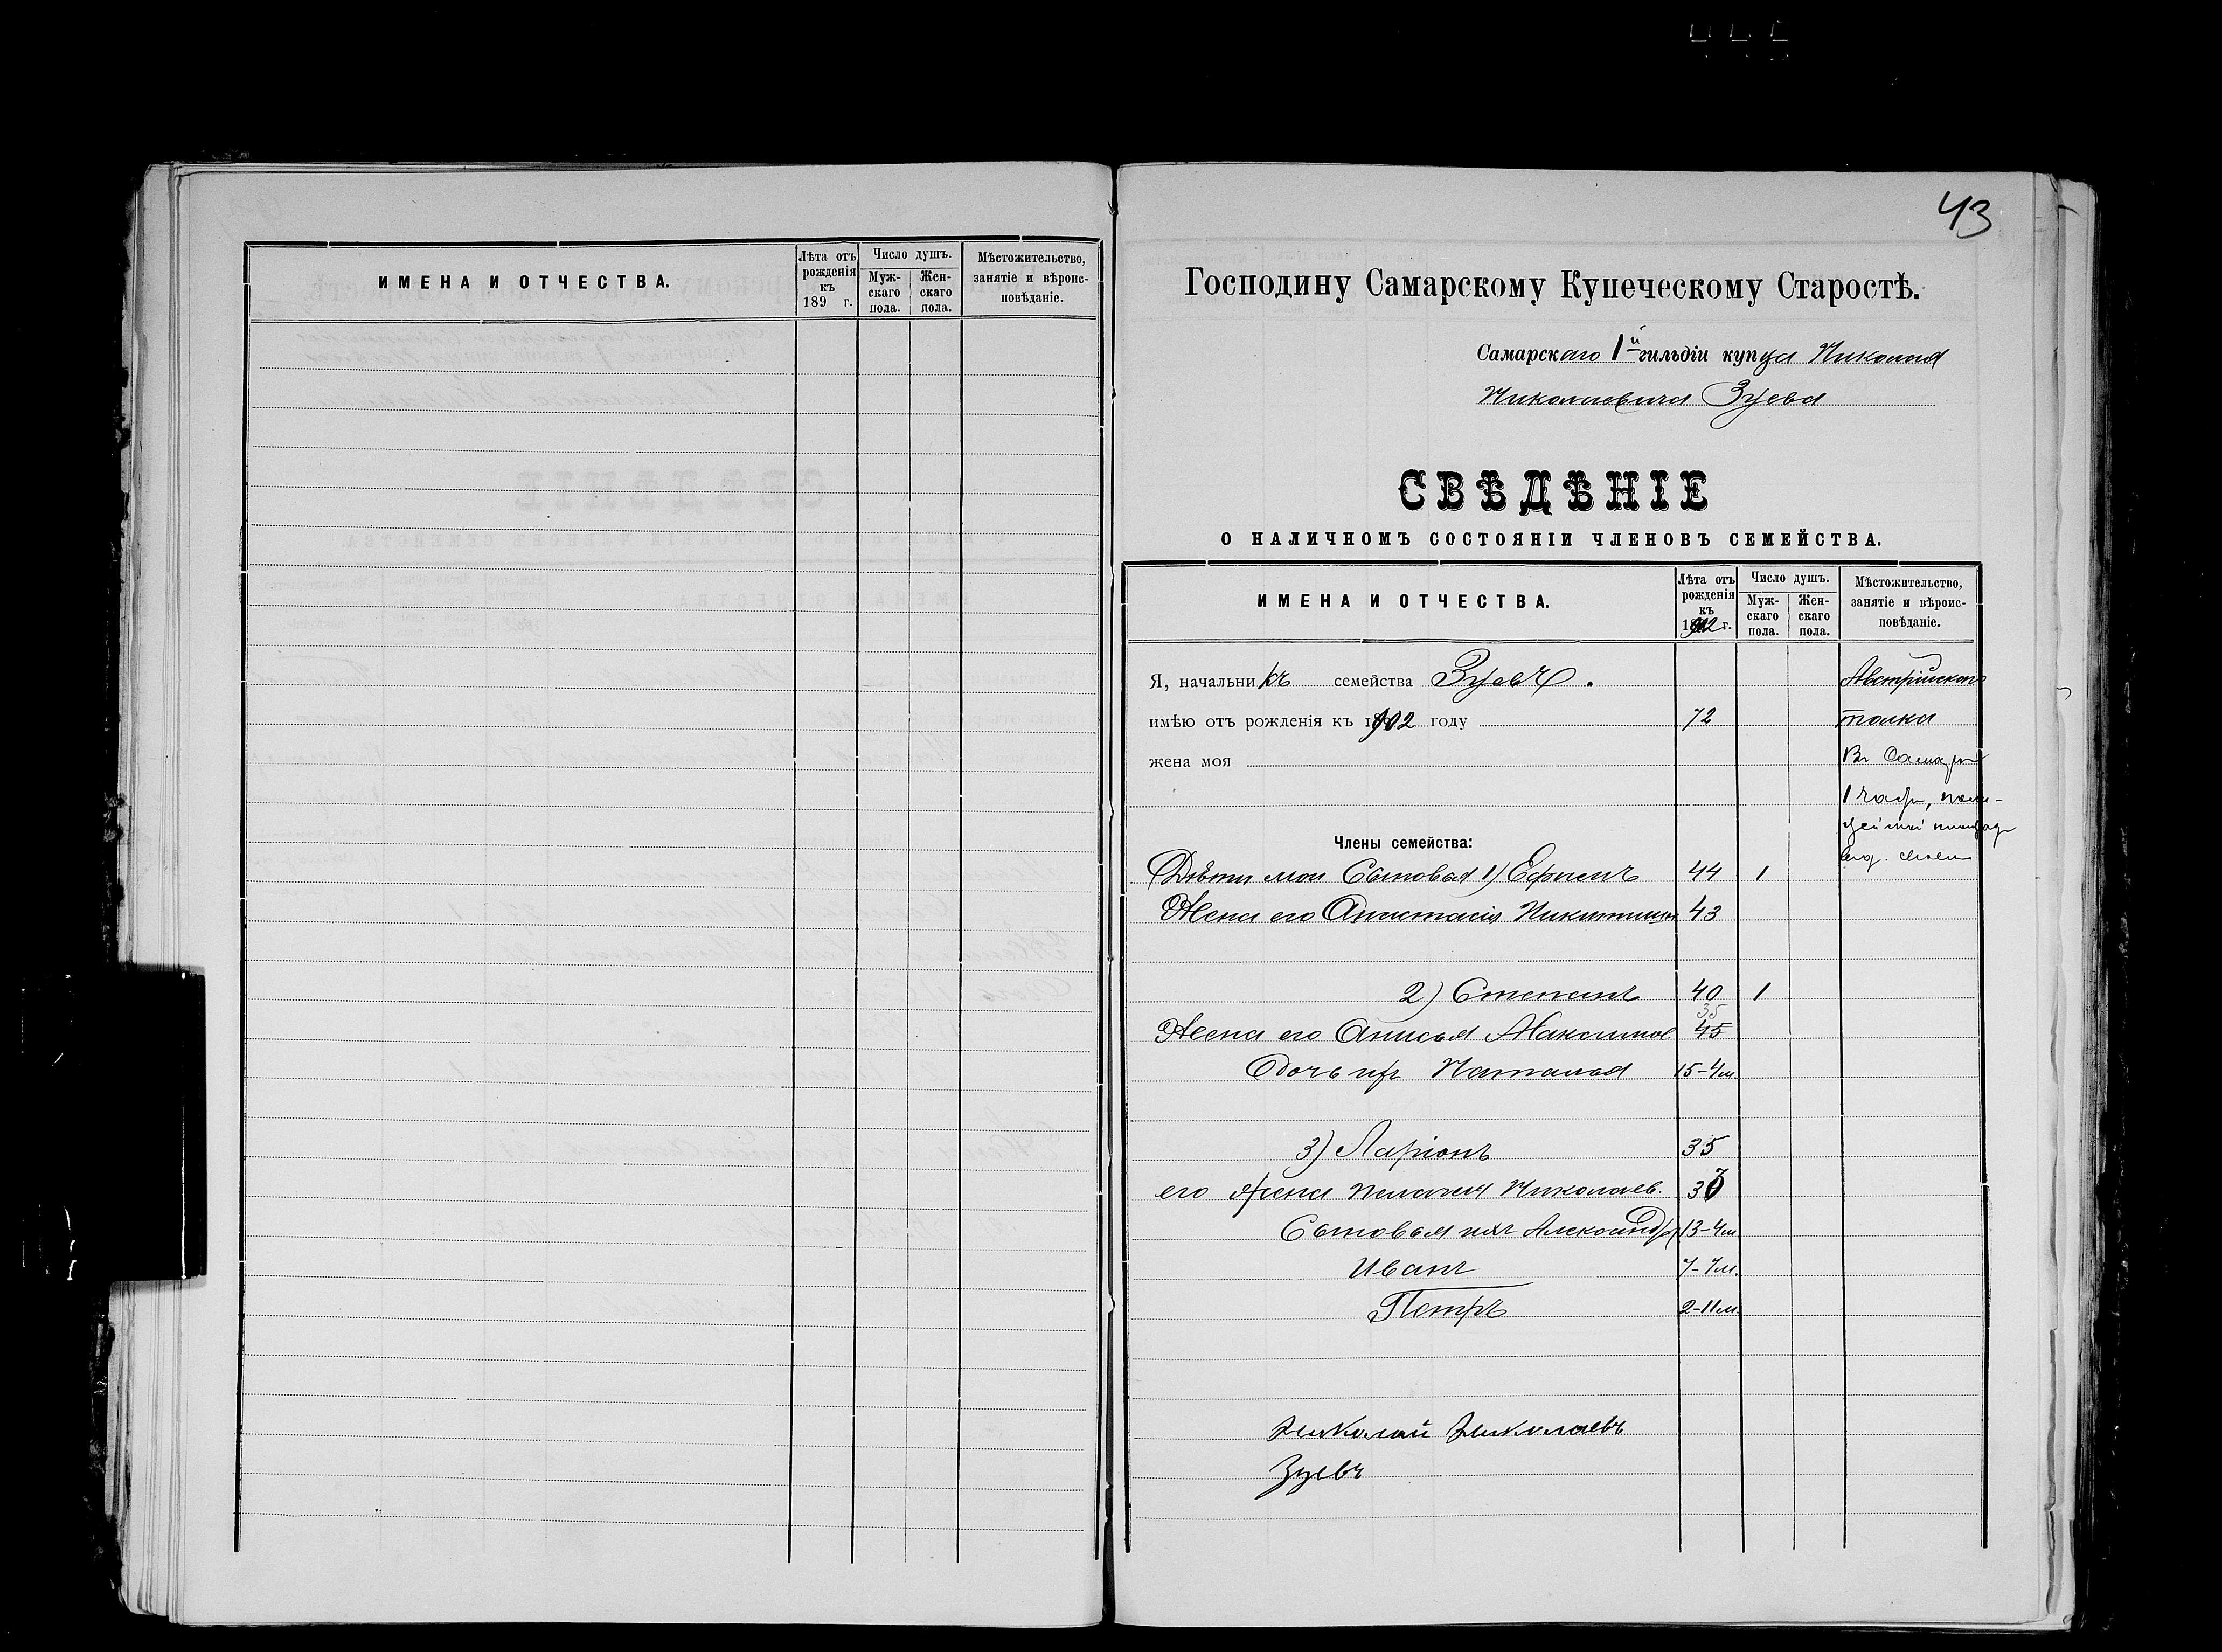 ИМЕНА И ОТЧЕСТВА.
Лѣта отъ рожденія къ 189 г.
Число душъ.
Муж-скаго пола.
Жен-скаго пола.
Мѣстожительство, занятіе и вѣроис-повѣданіе.
43
Господину Самарскому Купеческому Старостѣ.
Самарскаго 1й гильдіи купца Николая
Николаевича Зуева
СВѢДѢНІЕ
О НАЛИЧНОМЪ СОСТОЯНІИ ЧЛЕНОВЪ СЕМЕЙСТВА.
ИМЕНА И ОТЧЕСТВА.
Лѣта отъ
рожденія
къ
1902 г.
Число душъ.
Муж-скаго пола.
Жен-скаго пола.
Мѣстожительство,
занятіе и вѣроис-
повѣданіе.
Я, начальникъ семейства Зуевъ. Австрійскаго
имѣю отъ рожденія къ 1902 году 72 толка
жена моя Въ Самарѣ
1 части,
Члены семейства:
Дѣти мои Сыновья 1) Ефимъ 44 1
Жена его Анастасія Никитишн 43
2) Степанъ 40 1
35
Жена его Анисья Максимов 45
Дочь ихъ Наталья 15-4 м.
3) Ларіонъ 35
его жена Пелагея Николаев. 37
Сыновья ихъ Александръ 13-4 м
Иванъ 7-7 м.
Петръ 2-11 м.
Николай Николаевъ
Зуевъ